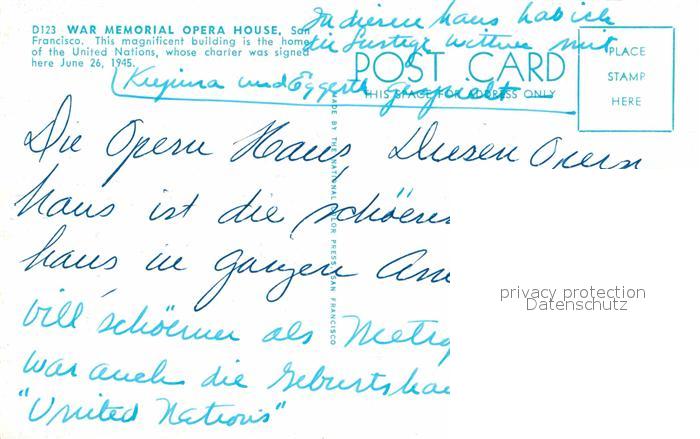 D123 WAR MEMORIAL OPERA HOUSE, San
Francisco. This magnificent building is the home
of the United Nations, whose charter was signed
here June 26, 1945.
In diesem haus hab ich
die lustige witwe mit
Kiepura und Eggerth
POST CARD
THIS SPACE FOR ADDRESS ONLY
PLACE
STAMP
HERE
MADE BY THE NATIONAL COLOR PRESS, SAN FRANCISCO
Die Opern Haus, Diesen Opern
haus ist die schöens
haus in ganzen Am
vill schöener als Metro
war auch die Geburtshau
"United Nations"
privacy protection
Datenschutz